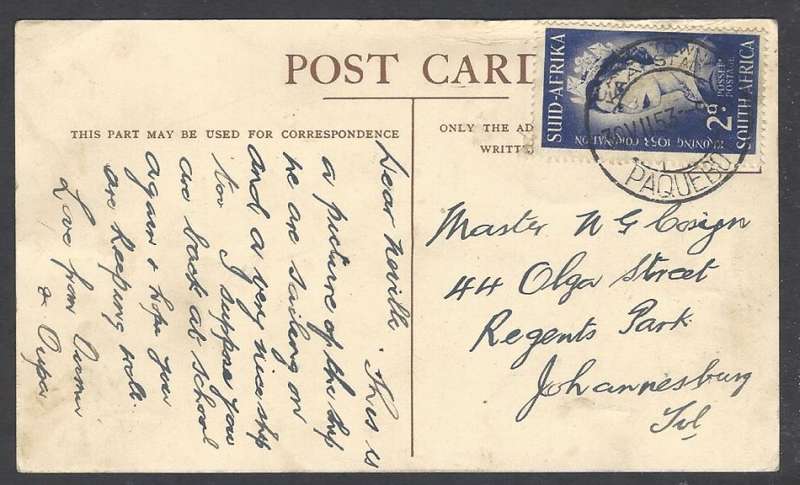 POST CARD
THIS PART MAY BE USED FOR CORRESPONDENCE
ONLY THE AD
WRITT
SUID-AFRIKA
SOUTH AFRICA
POSSEEL
POSTAGE
2d
KRONING 1953 CORONATION
30 VII 53
PAQUEBO
Dear Neville This is
a picture of the ship
we are sailing on
and a very nice ship
too I suppose you
are back at school
again & hope you
are keeping well.
Love from Ouma
& Oupa
Master N G Cosign
44 Olga Street
Regents Park
Johannesburg
Tvl